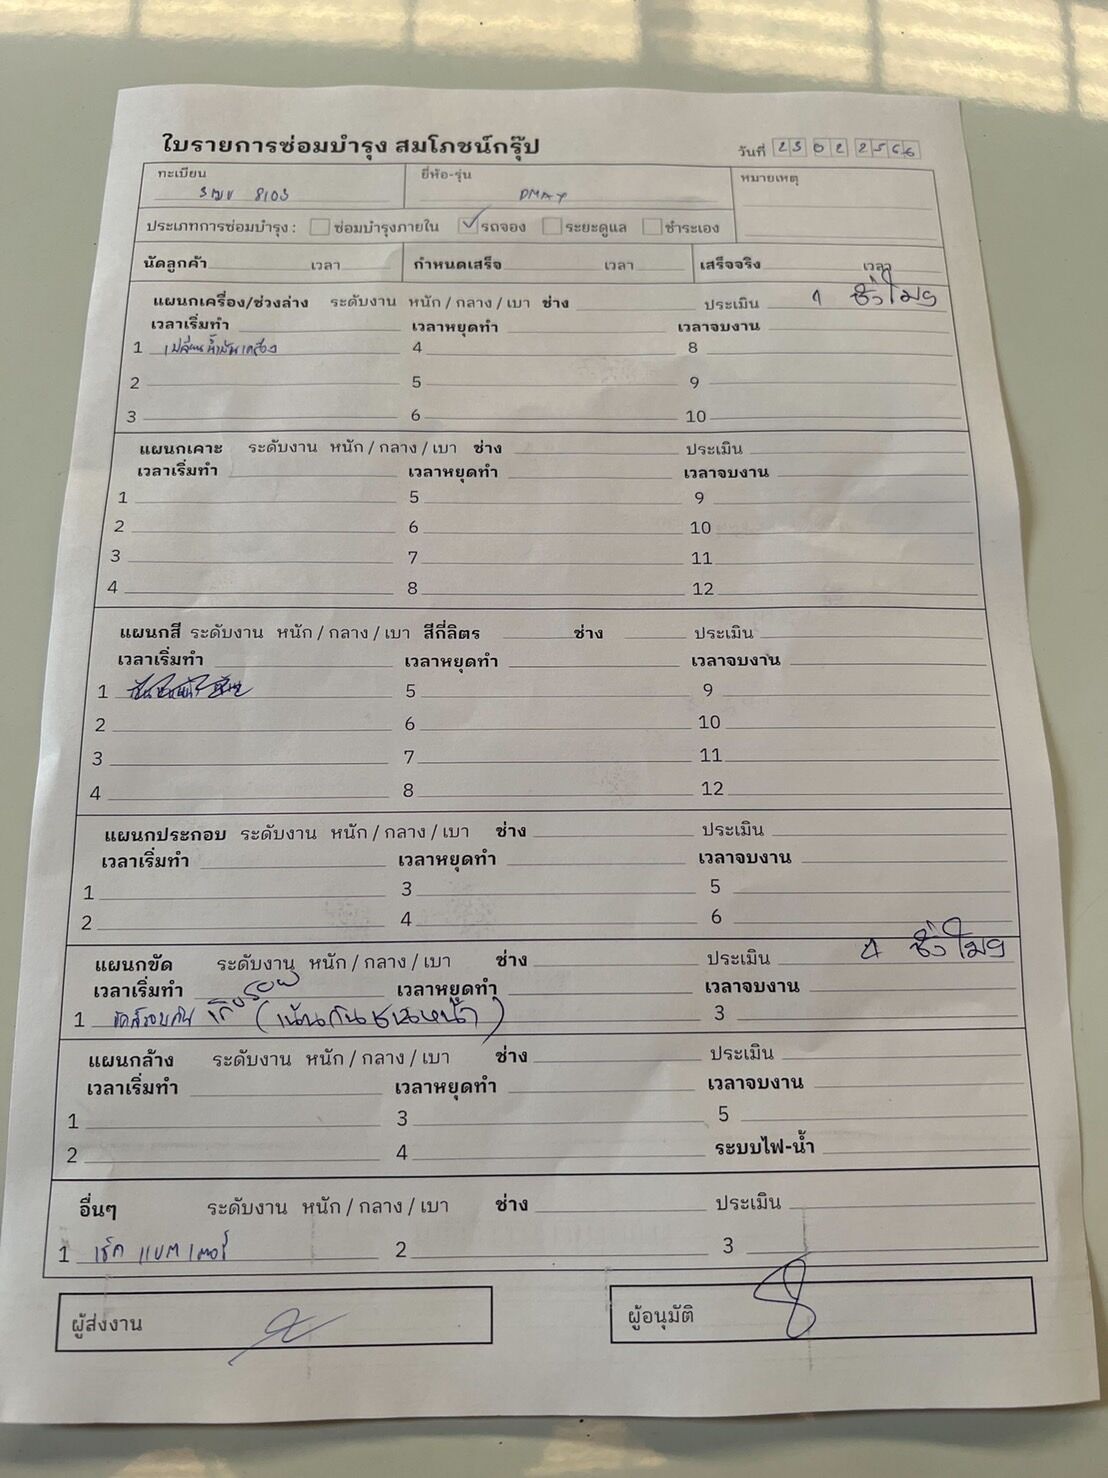 ใบรายการซ่อมบำรุง สมโภชน์กรุ๊ป
วันที่ 23 02 2566
ทะเบียน 8103
ยี่ห้อ-รุ่น DMAX
หมายเหตุ
ประเภทการซ่อมบำรุง : ซ่อมบำรุงภายใน รถจอง ระยะดูแล ชำระเอง
นัดลูกค้า เวลา กำหนดเสร็จ เวลา เสร็จจริง เวลา
แผนกเครื่อง/ช่วงล่าง ระดับงาน หนัก / กลาง / เบา ช่าง ประเมิน 1 ชั่วโมง
เวลาเริ่มทำ เวลาหยุดทำ เวลาจบงาน
1 เปลี่ยนน้ำมันเครื่อง 4 8
2 5 9
3 6 10
แผนกเคาะ ระดับงาน หนัก / กลาง / เบา ช่าง ประเมิน
เวลาเริ่มทำ เวลาหยุดทำ เวลาจบงาน
1 5 9
2 6 10
3 7 11
4 8 12
แผนกสี ระดับงาน หนัก / กลาง / เบา สีกี่ลิตร ช่าง ประเมิน
เวลาเริ่มทำ เวลาหยุดทำ เวลาจบงาน
1 5 9
2 6 10
3 7 11
4 8 12
แผนกประกอบ ระดับงาน หนัก / กลาง / เบา ช่าง ประเมิน
เวลาเริ่มทำ เวลาหยุดทำ เวลาจบงาน
1 3 5
2 4 6
แผนกขัด ระดับงาน หนัก / กลาง / เบา ช่าง ประเมิน 4 ชั่วโมง
เวลาเริ่มทำ เวลาหยุดทำ เวลาจบงาน
1 ขัดสีรอบคัน เก็บรอย (เน้นกันชนหน้า) 3
แผนกล้าง ระดับงาน หนัก / กลาง / เบา ช่าง ประเมิน
เวลาเริ่มทำ เวลาหยุดทำ เวลาจบงาน
1 3 5
2 4 ระบบไฟ-น้ำ
อื่นๆ ระดับงาน หนัก / กลาง / เบา ช่าง ประเมิน
1 เช็ค แบตเตอรี่ 2 3
ผู้ส่งงาน ผู้อนุมัติ